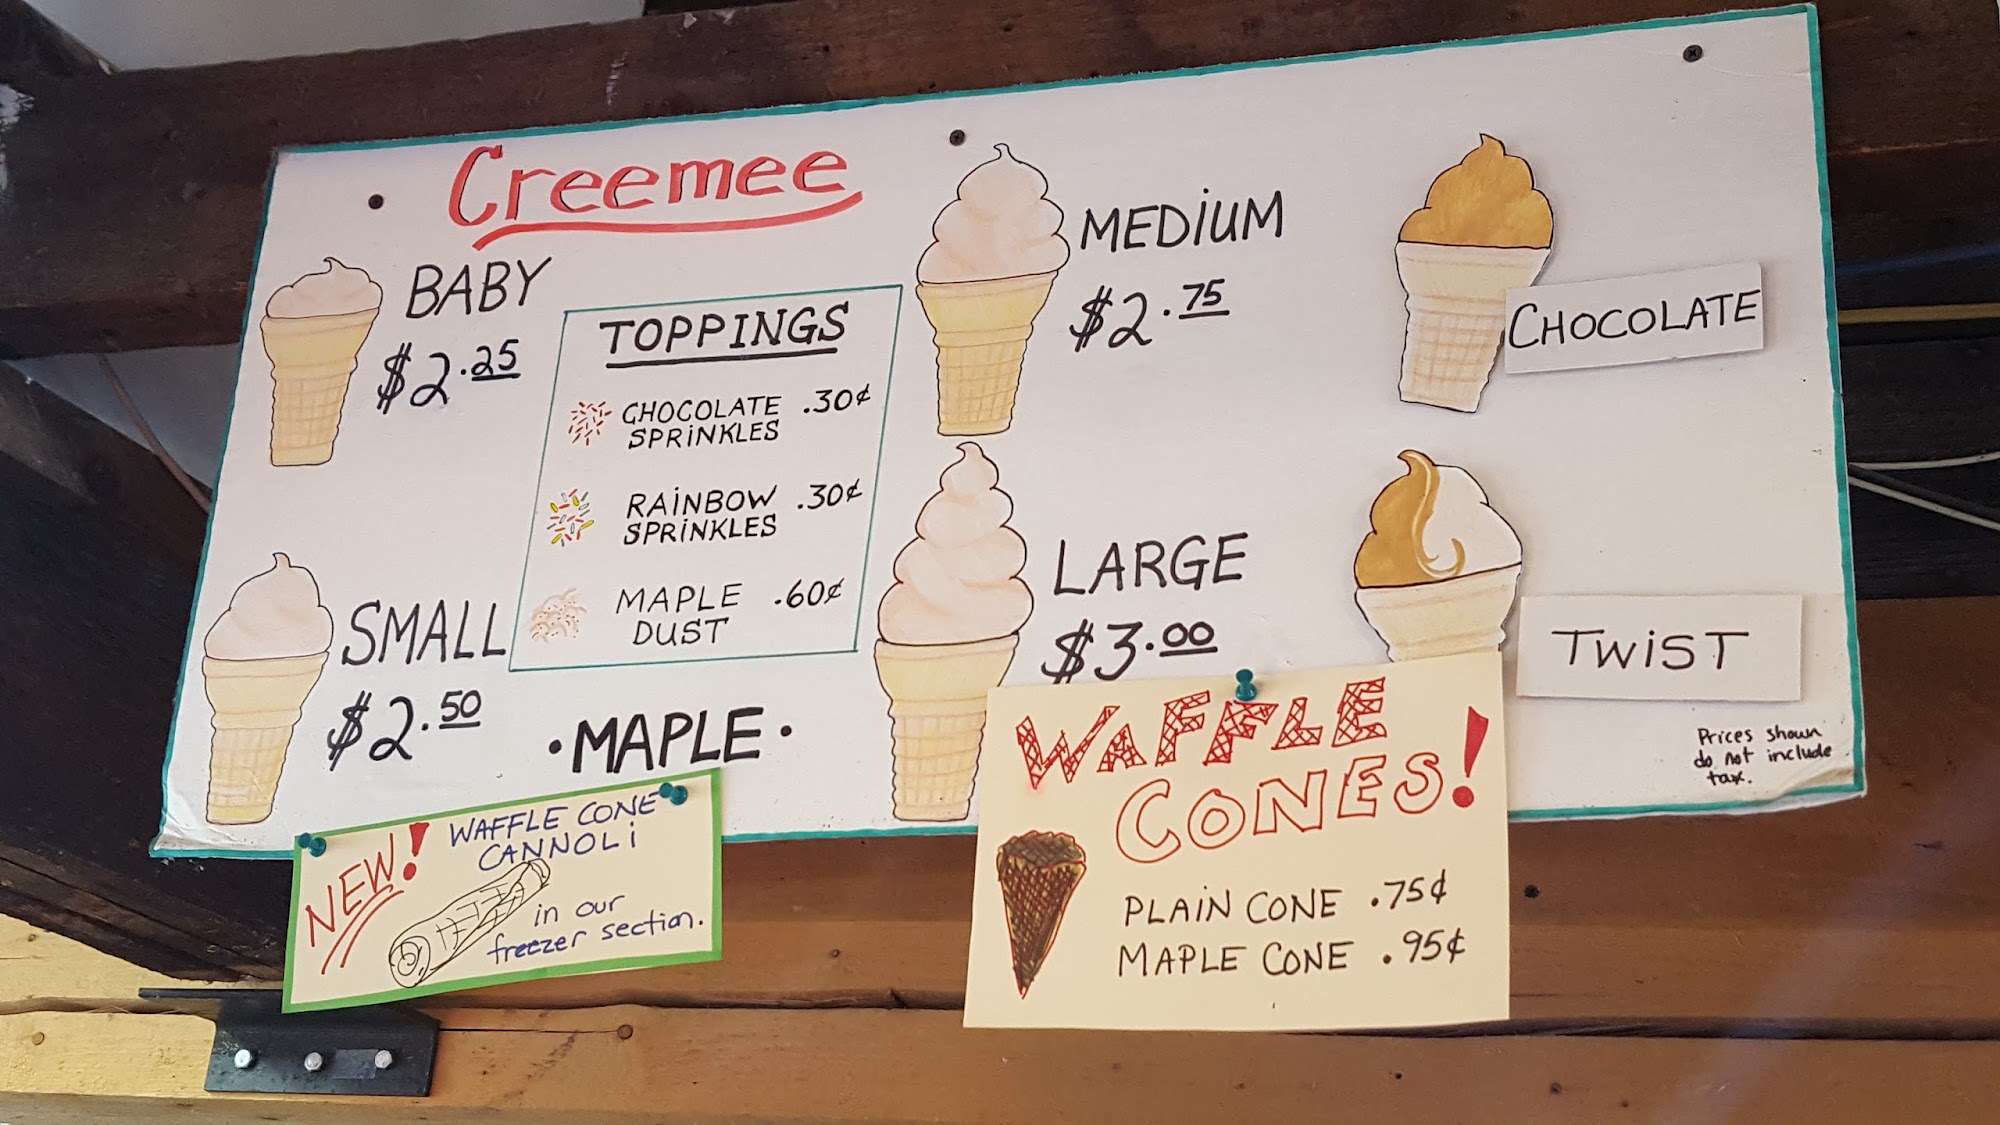 Creemee
BABY
$2.25
SMALL
$2.50
TOPPINGS
CHOCOLATE .30¢
SPRINKLES
RAINBOW .30¢
SPRINKLES
MAPLE .60¢
DUST
• MAPLE •
MEDIUM
$2.75
LARGE
$3.00
CHOCOLATE
TWIST
Prices shown
do not include
tax.
NEW!
WAFFLE CONE
CANNOLI
in our
freezer section.
WAFFLE
CONES!
PLAIN CONE .75¢
MAPLE CONE .95¢